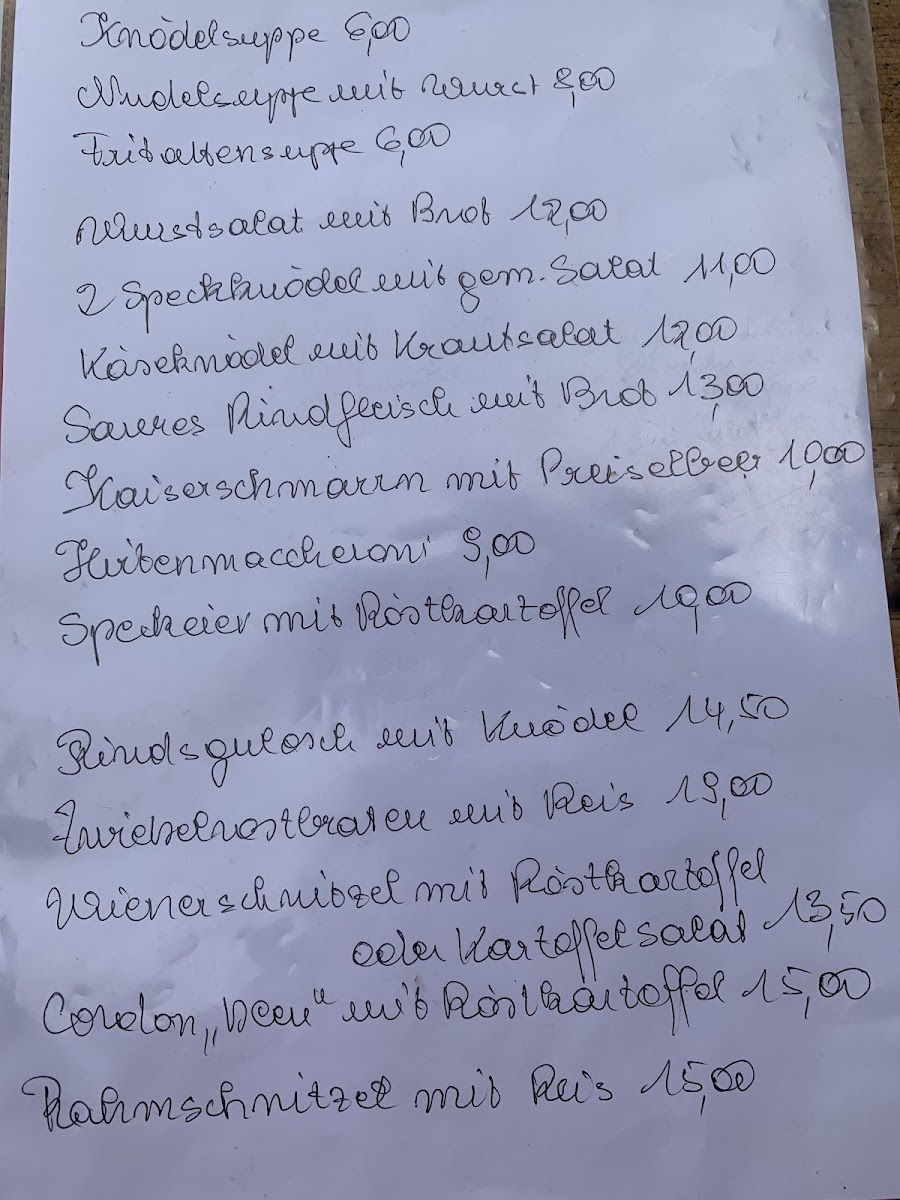 Knödelsuppe 6,00
Nudelsuppe mit Wurst 8,00
Fritattensuppe 6,00
Wurstsalat mit Brot 12,00
2 Speckknödel mit gem. Salat 11,00
Käseknödel mit Krautsalat 12,00
Saures Rindfleisch mit Brot 13,00
Kaiserschmarrn mit Preiselbeer 10,00
Hirtenmaccheroni 9,00
Speckeier mit Röstkartoffel 10,00
Rindsgulasch mit Knödel 14,50
Zwiebelrostbraten mit Reis 19,00
Wienerschnitzel mit Röstkartoffel
oder Kartoffelsalat 13,50
Cordon „bleu“ mit Röstkartoffel 15,00
Rahmschnitzel mit Reis 15,00